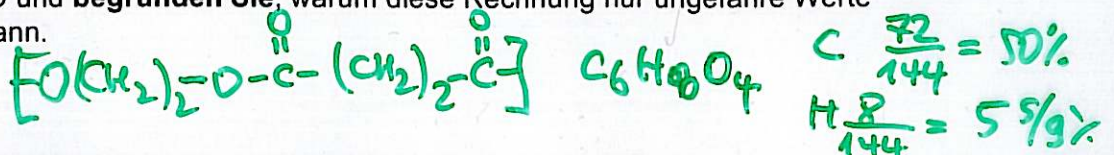 und begründen Sie, warum diese Rechnung nur ungefähre Werte
ann.
[-O(CH₂)₂-O-C(=O)-(CH₂)₂-C(=O)-] C₆H₈O₄ C 72/144 = 50%
H 8/144 = 5 5/9%